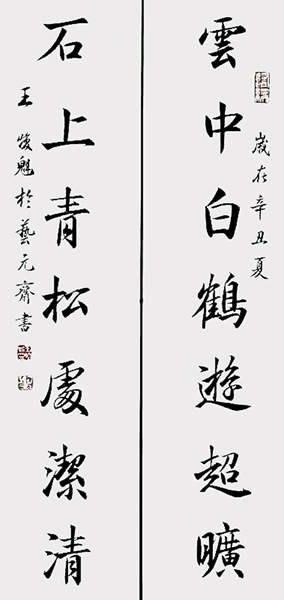 雲中白鶴遊超曠
歲在辛丑夏
石上青松處潔清
王俊魁於藝元齋書